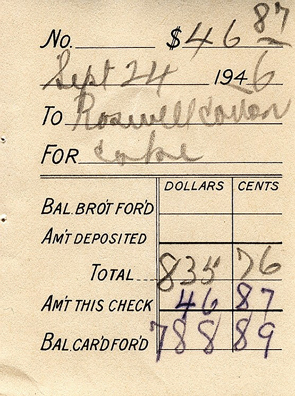 No. $46 87
Sept 24 1946
To Roswell
For
DOLLARS CENTS
BAL. BRO'T FOR'D
AM'T DEPOSITED
TOTAL 835 76
AM'T THIS CHECK 46 87
BAL. CAR'D FOR'D 788 89